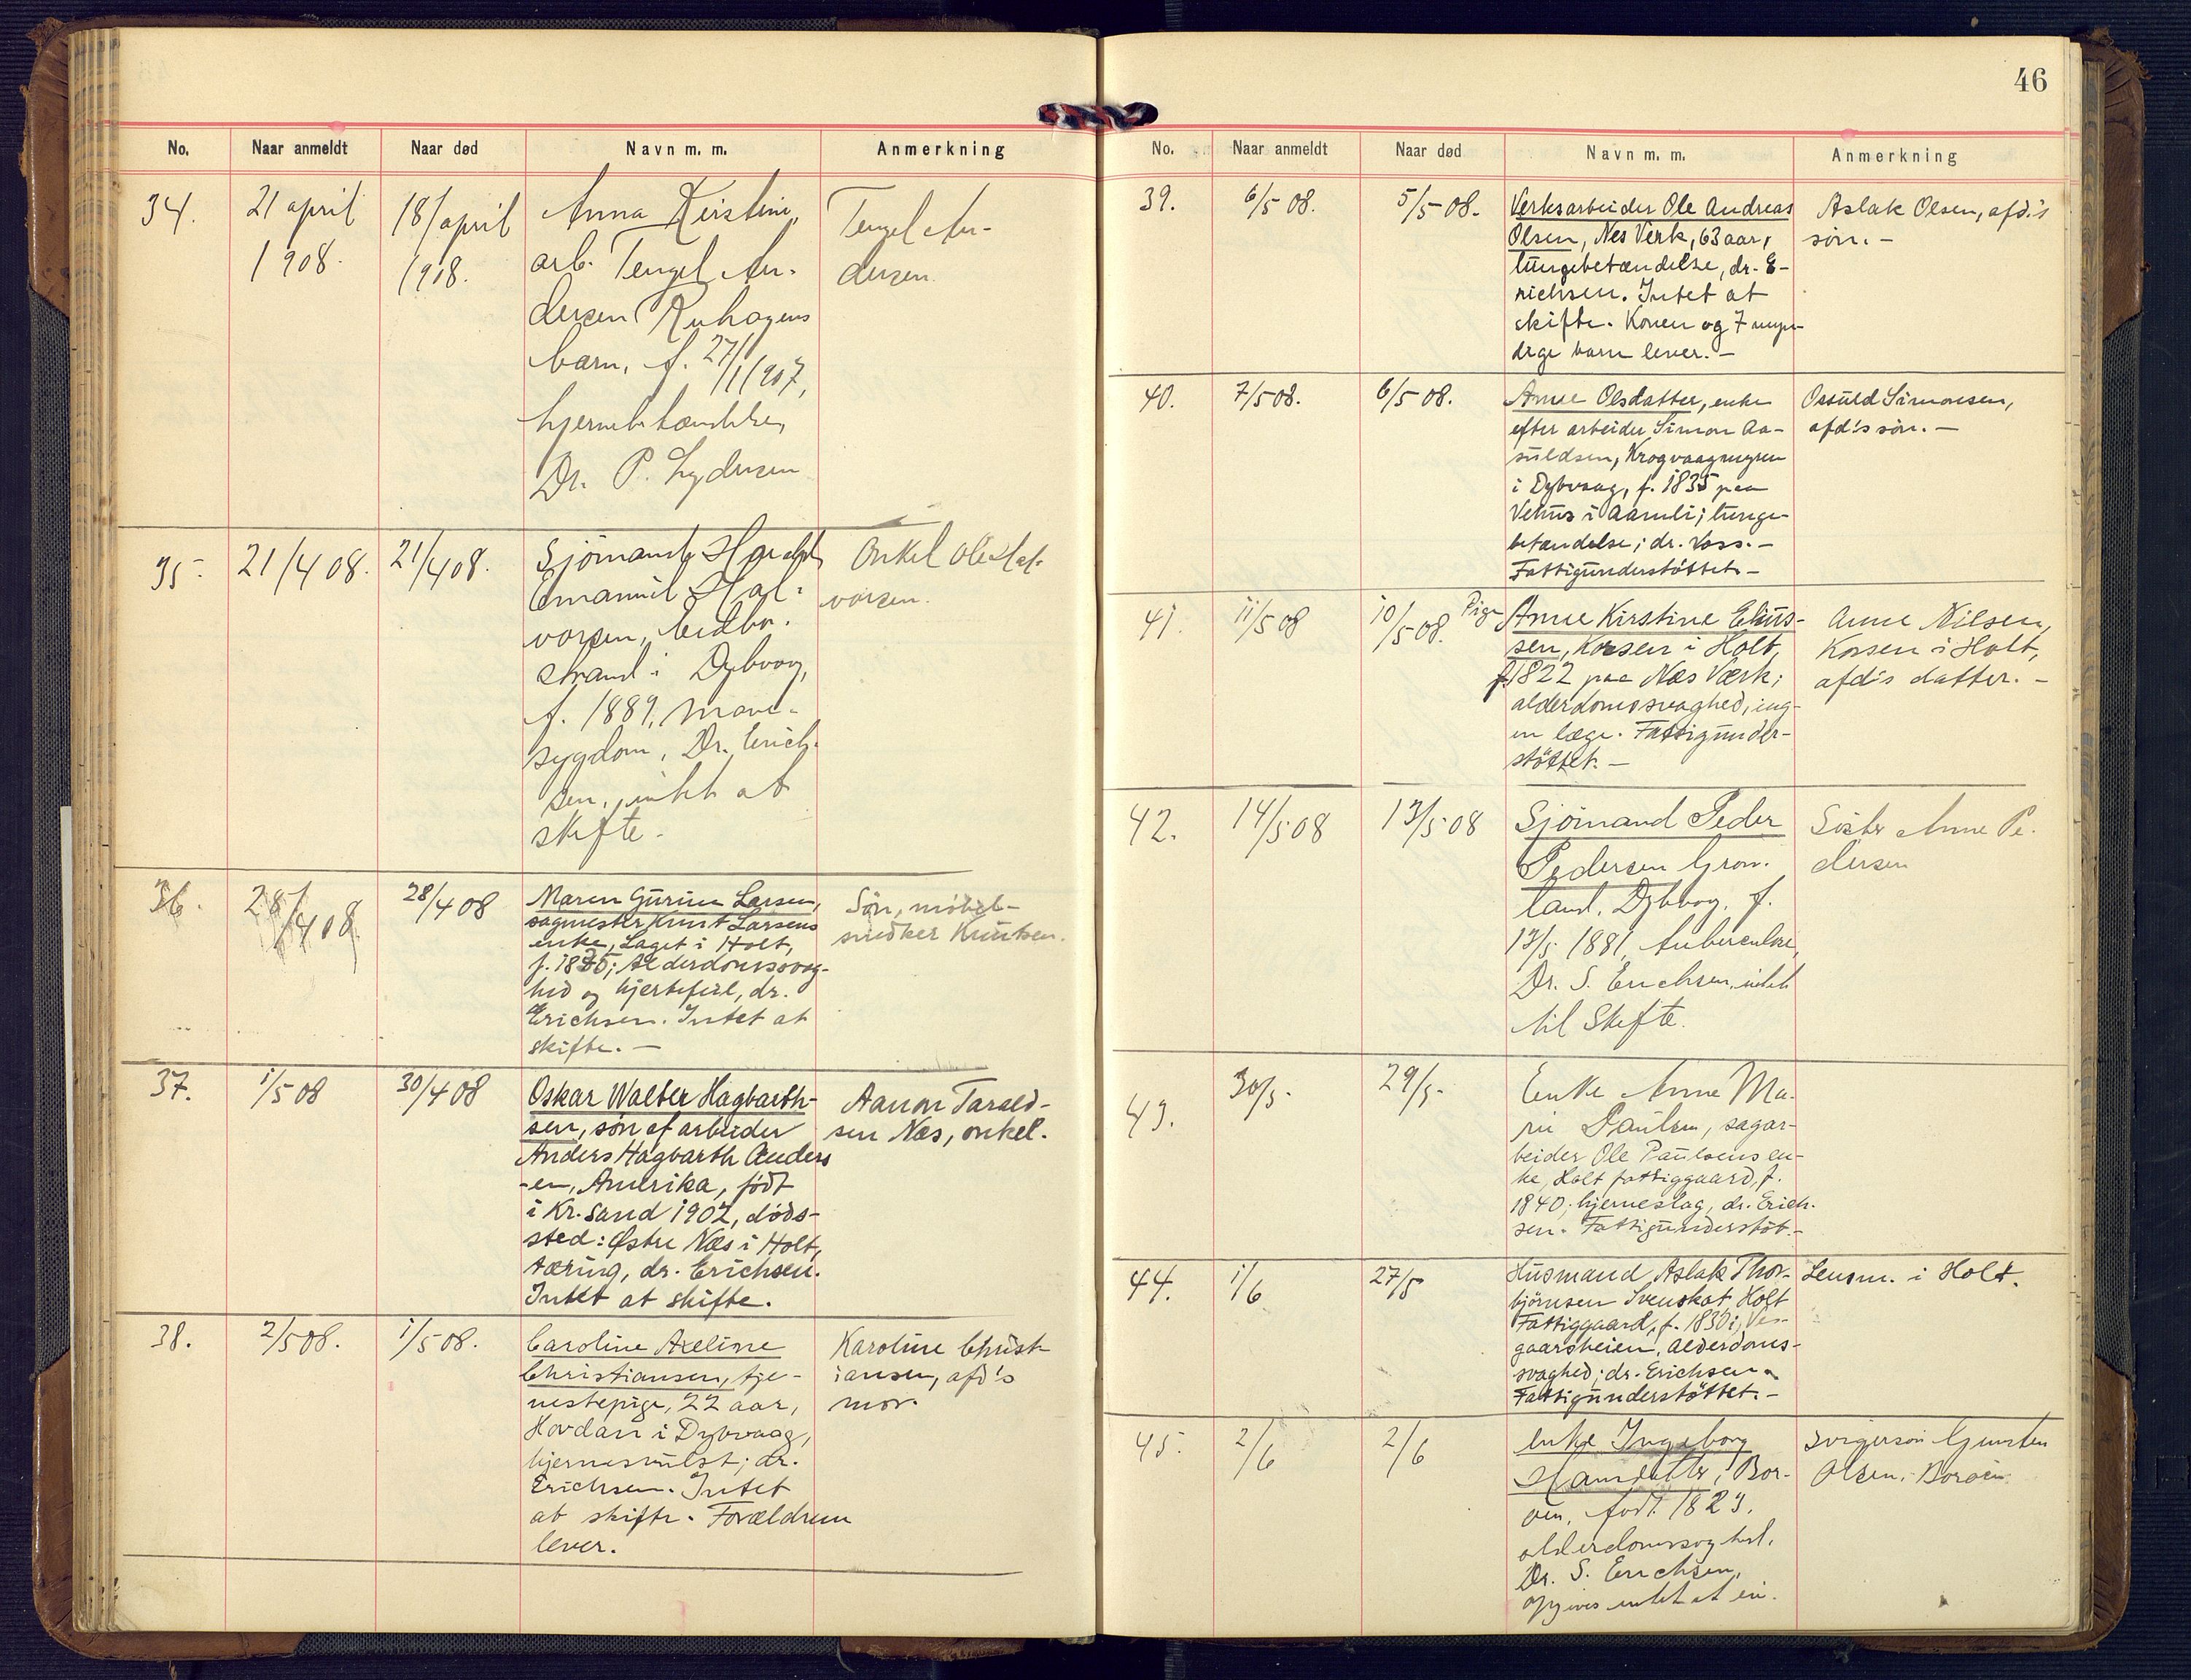 No. Naar anmeldt Naar død Navn m. m. Anmerkning
34. 21 april 1908. 18/april 1908.
Anna Kristine,
arb. Tengel An-
dersen
barn, f. 27/1 1907,
hjernebetændelse,
Dr. P. Lydersen
Tengel An-
dersen
35. 21/4 08. 21/4 08.
Sjömand Harald
Emanuel Hal-
vorsen,
strand i Dybvaag,
f. 1889, mave-
sygdom, Dr. Erich-
sen, intet at
skifte.
Onkel Ole Hal-
vorsen.
36. 28/4 08 28/4 08
Maren Gurine Larsen,
sagmester Knut Larsens
enke, Laget i Holt,
f. 18; Alderdomssvag-
hed og hjertefeil, dr.
Erichsen. Intet at
skifte. —
Sön, möbel-
snedker Knutsen.
37. 1/5 08 30/4 08
Oskar Walter Hagbarth-
sen, sön af arbeider
Anders Hagbarth Anders
-en, Amerika, född
i Kr.sand 1902, döds-
sted: Østre Næs i Holt,
tæring, dr. Erichsen.
Intet at skifte.
Aanon Tarald-
sen Næs, onkel.
38. 2/5 08. 1/5 08.
Caroline Axeline
Christiansen, tje-
nestepige, 22 aar,
Hovdan i Dybvaag,
hjernesvulst; dr.
Erichsen. Intet
at skifte. Forældrene
lever.
Karoline Christ-
iansen, afd's
mor.
46
No. Naar anmeldt Naar død Navn m. m. Anmerkning
39. 6/5 08. 5/5 08.
Verksarbeider Ole Andreas
Olsen, Nes Verk, 63 aar,
lungebetændelse, dr. E-
richsen. Intet at
skifte. Konen og 7 myn-
dige barn lever. —
Aslak Olsen, afd's
sön. —
40. 7/5 08. 6/5 08.
Anne Olsdatter, enke
efter arbeider Simon Aa-
suldsen, Krogvaagmyren
i Dybvaag, f. 1835 paa
Vehus i Aamli; lunge-
betændelse; dr. Voss. —
Fattigunderstöttet. —
Ossuld Simonsen,
afd's sön. —
41. 11/5 08 10/5 08.
Pige Anne Kirstine Elius-
sen, Korsen i Holt,
f. 1822 paa Næs Værk;
alderdomssvaghed, ing-
en læge. Fattigunder-
stöttet. —
Anne Nilsen,
Korsen i Holt,
afd's datter. —
42. 14/5 08 13/5 08
Sjömand Peder
Pedersen Grön-
land, Dybvog, f.
17/5 1881, tuberculose,
Dr. S. Erichsen, intet
til Skifte.
Söster Anne Pe-
dersen
43. 30/5. 29/5.
Enke Anne Ma-
rie Paulsen, sagar-
beider Ole Paulsens en-
ke, Holt fattiggaard, f.
1840; hjerneslag, dr. Erich-
sen. Fattigunderstöt. —
44. 1/6 27/5
Husmand Aslak Thor-
björnsen Svenskat, Holt
Fattiggaard, f. 1830 i Ves-
gaarsheien, alderdoms-
svaghed; dr. Erichsen.
Fattigunderstöttet. —
Lensm. i Holt.
45. 2/6 2/6
Enke Ingeborg
Hansdatter, Bor-
öen, född 1823,
alderdomssvaghed,
Dr. S. Erichsen,
opgives intet at eie.
Svigersön Gunsten
Olsen, Boröen